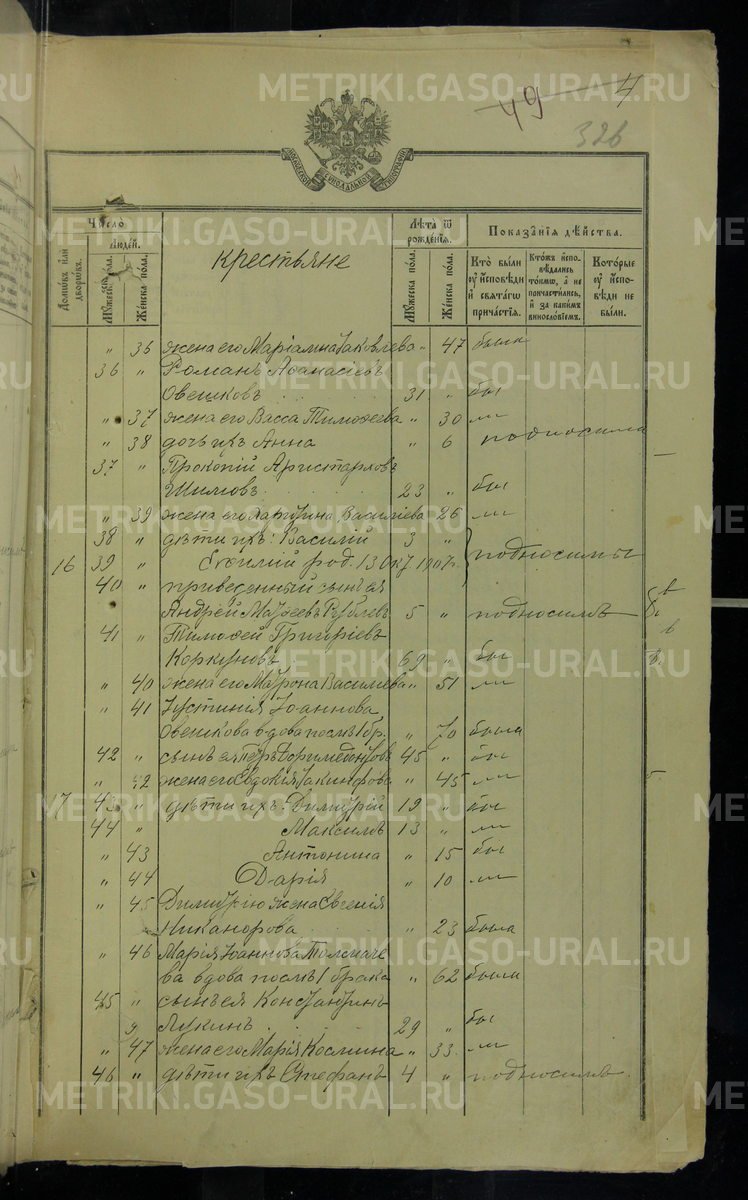 49 4
326
МОСКОВСКОЙ СѴНОДАЛЬНОЙ ТИПОГРАФІИ
Число̀
Людей.
Домѡвъ или дворѡвъ.
Мꙋжеска пола.
Же́нска по́ла.
Крестьяне
Лѣ́та ѿ рожде́нїѧ.
Мꙋ́жеска по́ла.
Же́нска по́ла.
Показа̑нїѧ дѣ́йства.
Кто̀ бы́ли ᲂу҆ и҆сповѣ́ди и҆ свѧта́гѡ прича́стїѧ.
Кто́жъ и҆сповѣ́дались то́кмѡ, а҆ не причасти́лись, и҆ за каки́мъ винosло́вїемъ.
Кото́рые ᲂу҆ и҆сповѣ́ди не бы́ли.
" 36 жена его Маріамна Іаковлева " 47 была
36 " Романъ Аѳанасіевъ
Овешковъ 31 " былъ
" 37 жена его Васса Тимоѳеева " 30 —
" 38 дочь ихъ Анна " 6 подносима
37 " Прокопій Аристарховъ
Шиловъ 23 " былъ
" 39 жена его Екатерина Василіева " 26 —
38 " дѣти ихъ: Василій 3 "
16 39 " Евѳимій род. 13 1907г. подносимы
40 " приведенный сынъ ея
Андрей Матѳеевъ Рублевъ 5 " подносимъ
41 " Тимоѳей Григоріевъ
Коркуновъ 69 " былъ
" 40 жена его Матрона Василіева " 51 —
" 41 Іустинія Іоаннова
Овешкова вдова послѣ 1 бр. " 70 была
42 " сынъ ея Петръ Доримедонтовъ 45 " былъ
" 42 жена его Евдокія Іакинѳова " 45 —
17 43 " дѣти ихъ: Димитрій 19 " былъ
44 " Максимъ 13 " —
" 43 Антонина " 15 был
" 44 Дарія " 10 —
" 45 Димитрію жена Евгенія
Никанорова " 23 была
" 46 Марія Іоаннова Толмаче
ва вдова послѣ 1 брака " 62 была
45 " сынъ ея Константинъ
Лукинъ 29 " былъ
" 47 жена его Марія Космина " 33 —
46 " дѣти ихъ Стефанъ 4 " подносимъ
METRIKI.GASO-URAL.RU